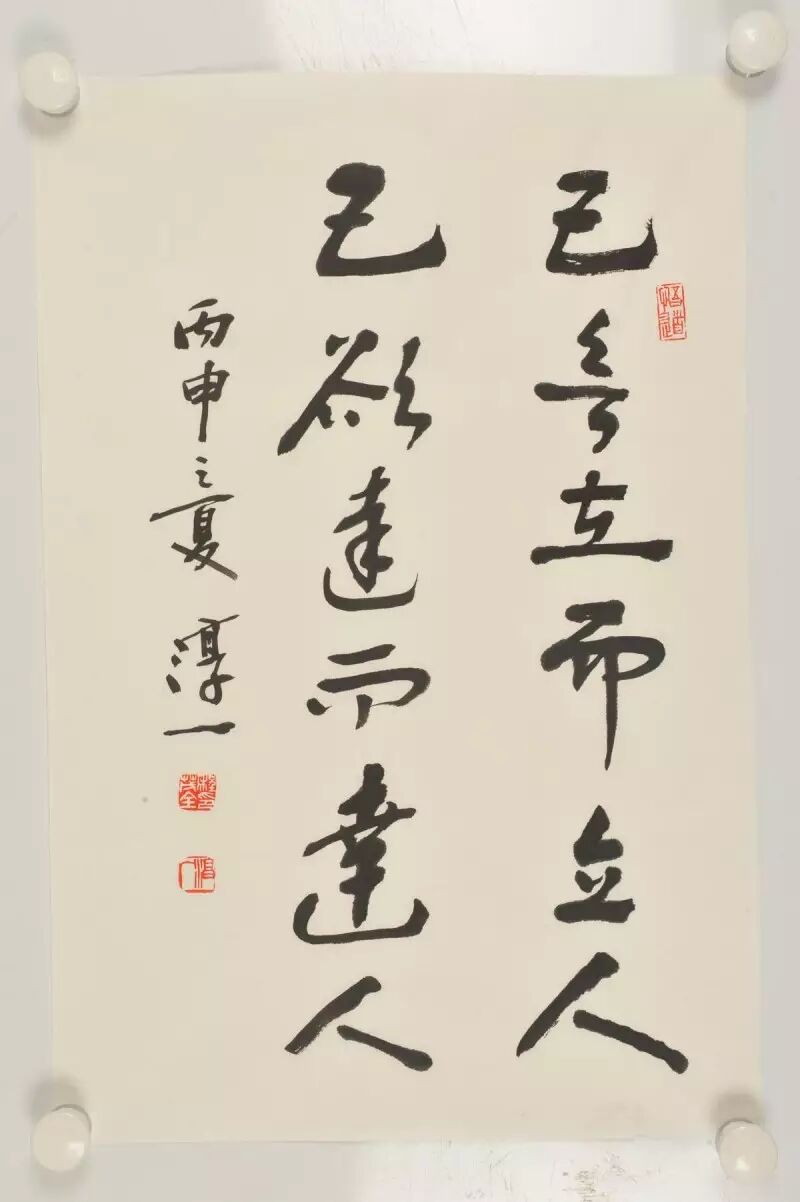 己欲立而立人
己欲達而達人
丙申之夏 淳一